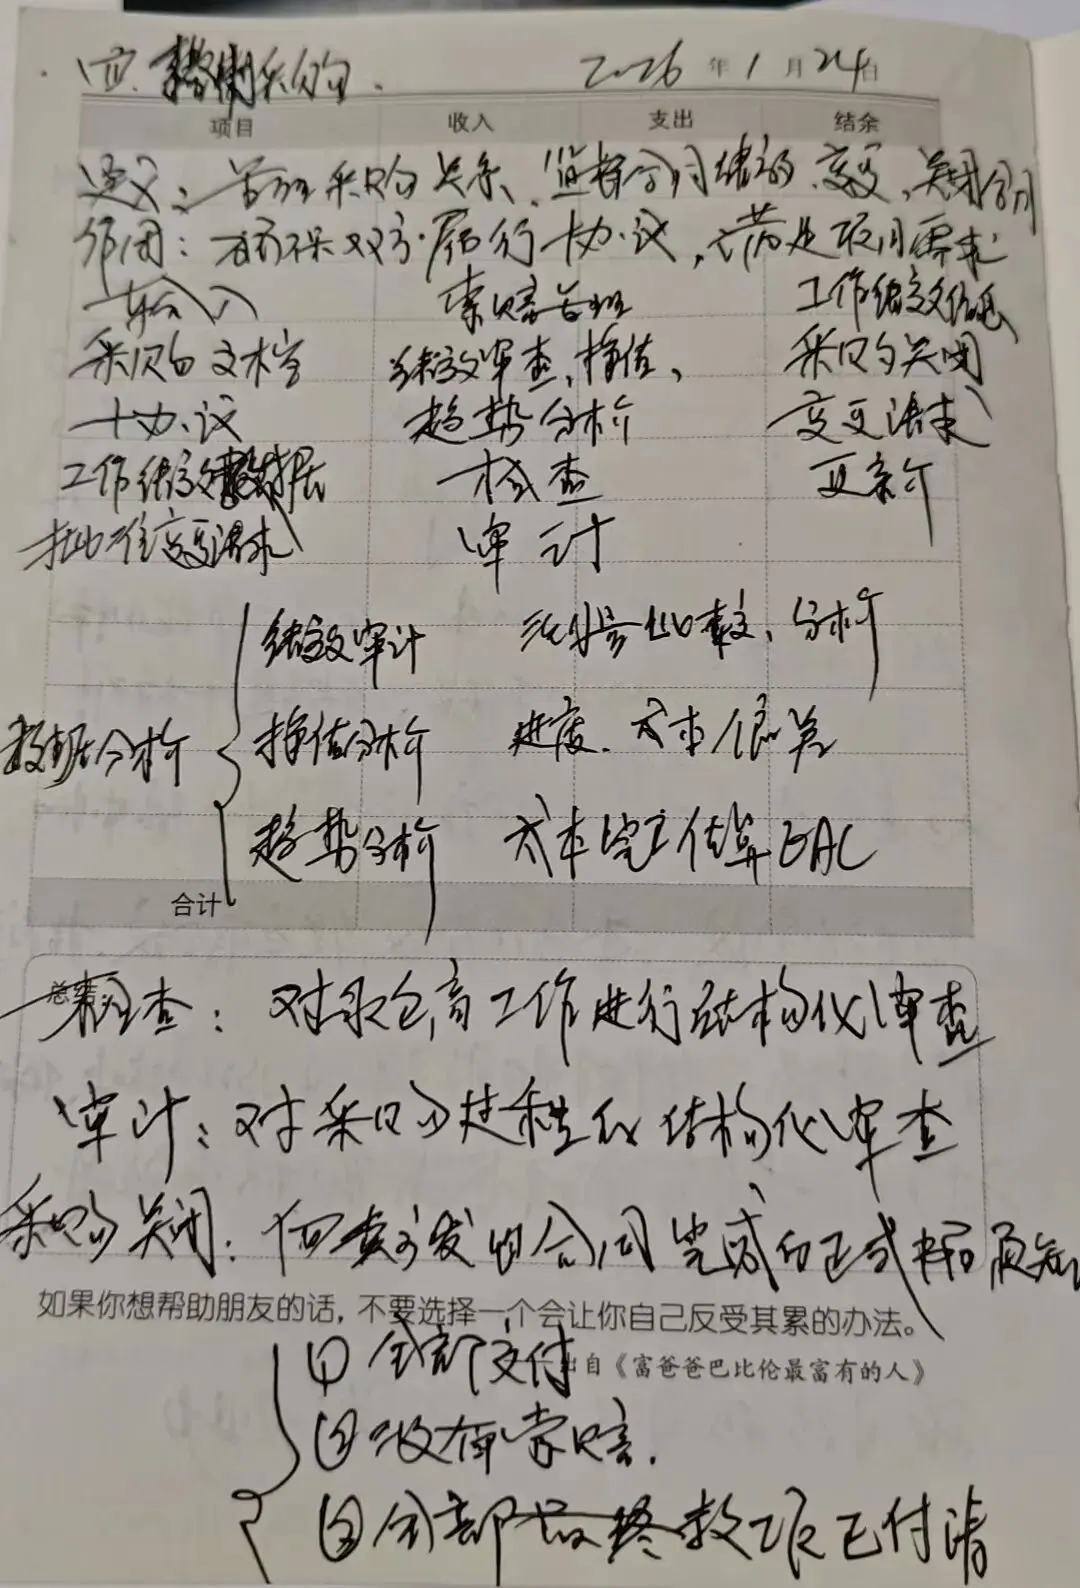 四、控制采购. 2026年1月24日
项目 收入 支出 结余
定义：管理采购关系、监督合同绩效、变更、关闭合同
作用：确保双方履行协议，满足项目需求
输入 索赔管理 工作绩效信息
采购文档 绩效审查，挣值， 采购关闭
协议 趋势分析 变更请求
工作绩效数据 检查 更新
批准变更请求 审计
绩效审计 分析
数据分析 挣值分析 进度、成本偏差
趋势分析 成本完工估算EAC
合计
总结
检查：对承包商工作进行结构化审查
审计：对采购过程的结构化审查
采购关闭：向卖方发出合同完成的正式书面通知
如果你想帮助朋友的话，不要选择一个会让你自己反受其累的办法。
①全部交付
出自《富爸爸巴比伦最富有的人》
②没有索赔.
③全部最终款项已付清